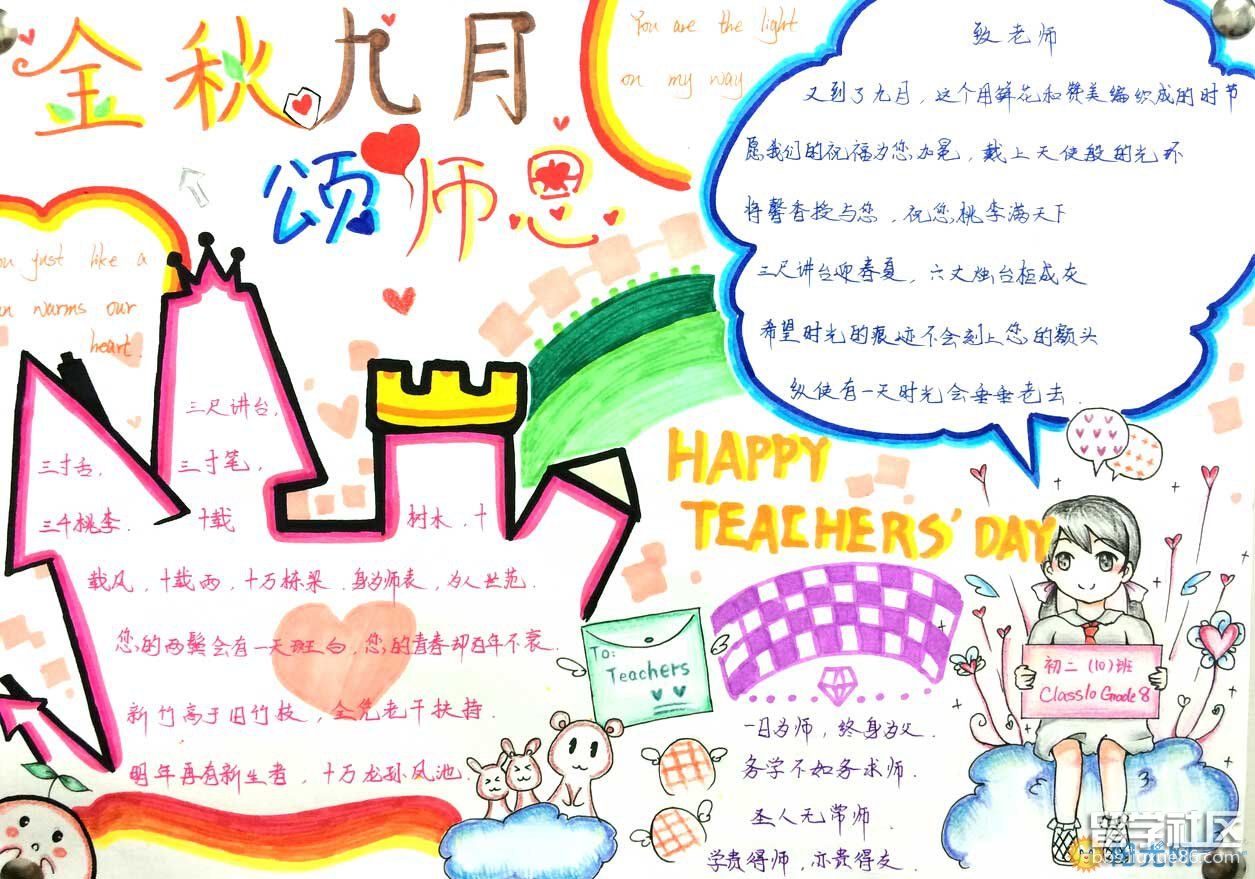 金秋九月
颂师恩
You are the light
on my way
致老师
又到了九月，这个用鲜花和赞美编织成的时节
愿我们的祝福为您加冕，戴上天使般的光环
将馨香授与您，祝您桃李满天下
三尺讲台迎春夏，六丈烛台柜成灰
希望时光的痕迹不会刻上您的额头
纵使有一天时光会垂垂老去.
you just like a
warms our
heart.
三尺讲台,
三寸舌, 三寸笔,
三千桃李. 十载 树木,十
载风,十载雨,十万栋梁.身为师表,为人世范.
您的两鬓会有一天斑白,您的青春却百年不衰.
新竹高于旧竹枝,全凭老干扶持.
明年再有新生者,十万龙孙凤池.
HAPPY
TEACHERS' DAY
To:
Teachers
初二(10)班
Class10 Grade8
一日为师,终身为父.
务学不如务求师.
圣人无常师.
学贵得师,亦贵得友.
留学社区
bbs.liuxue86.com